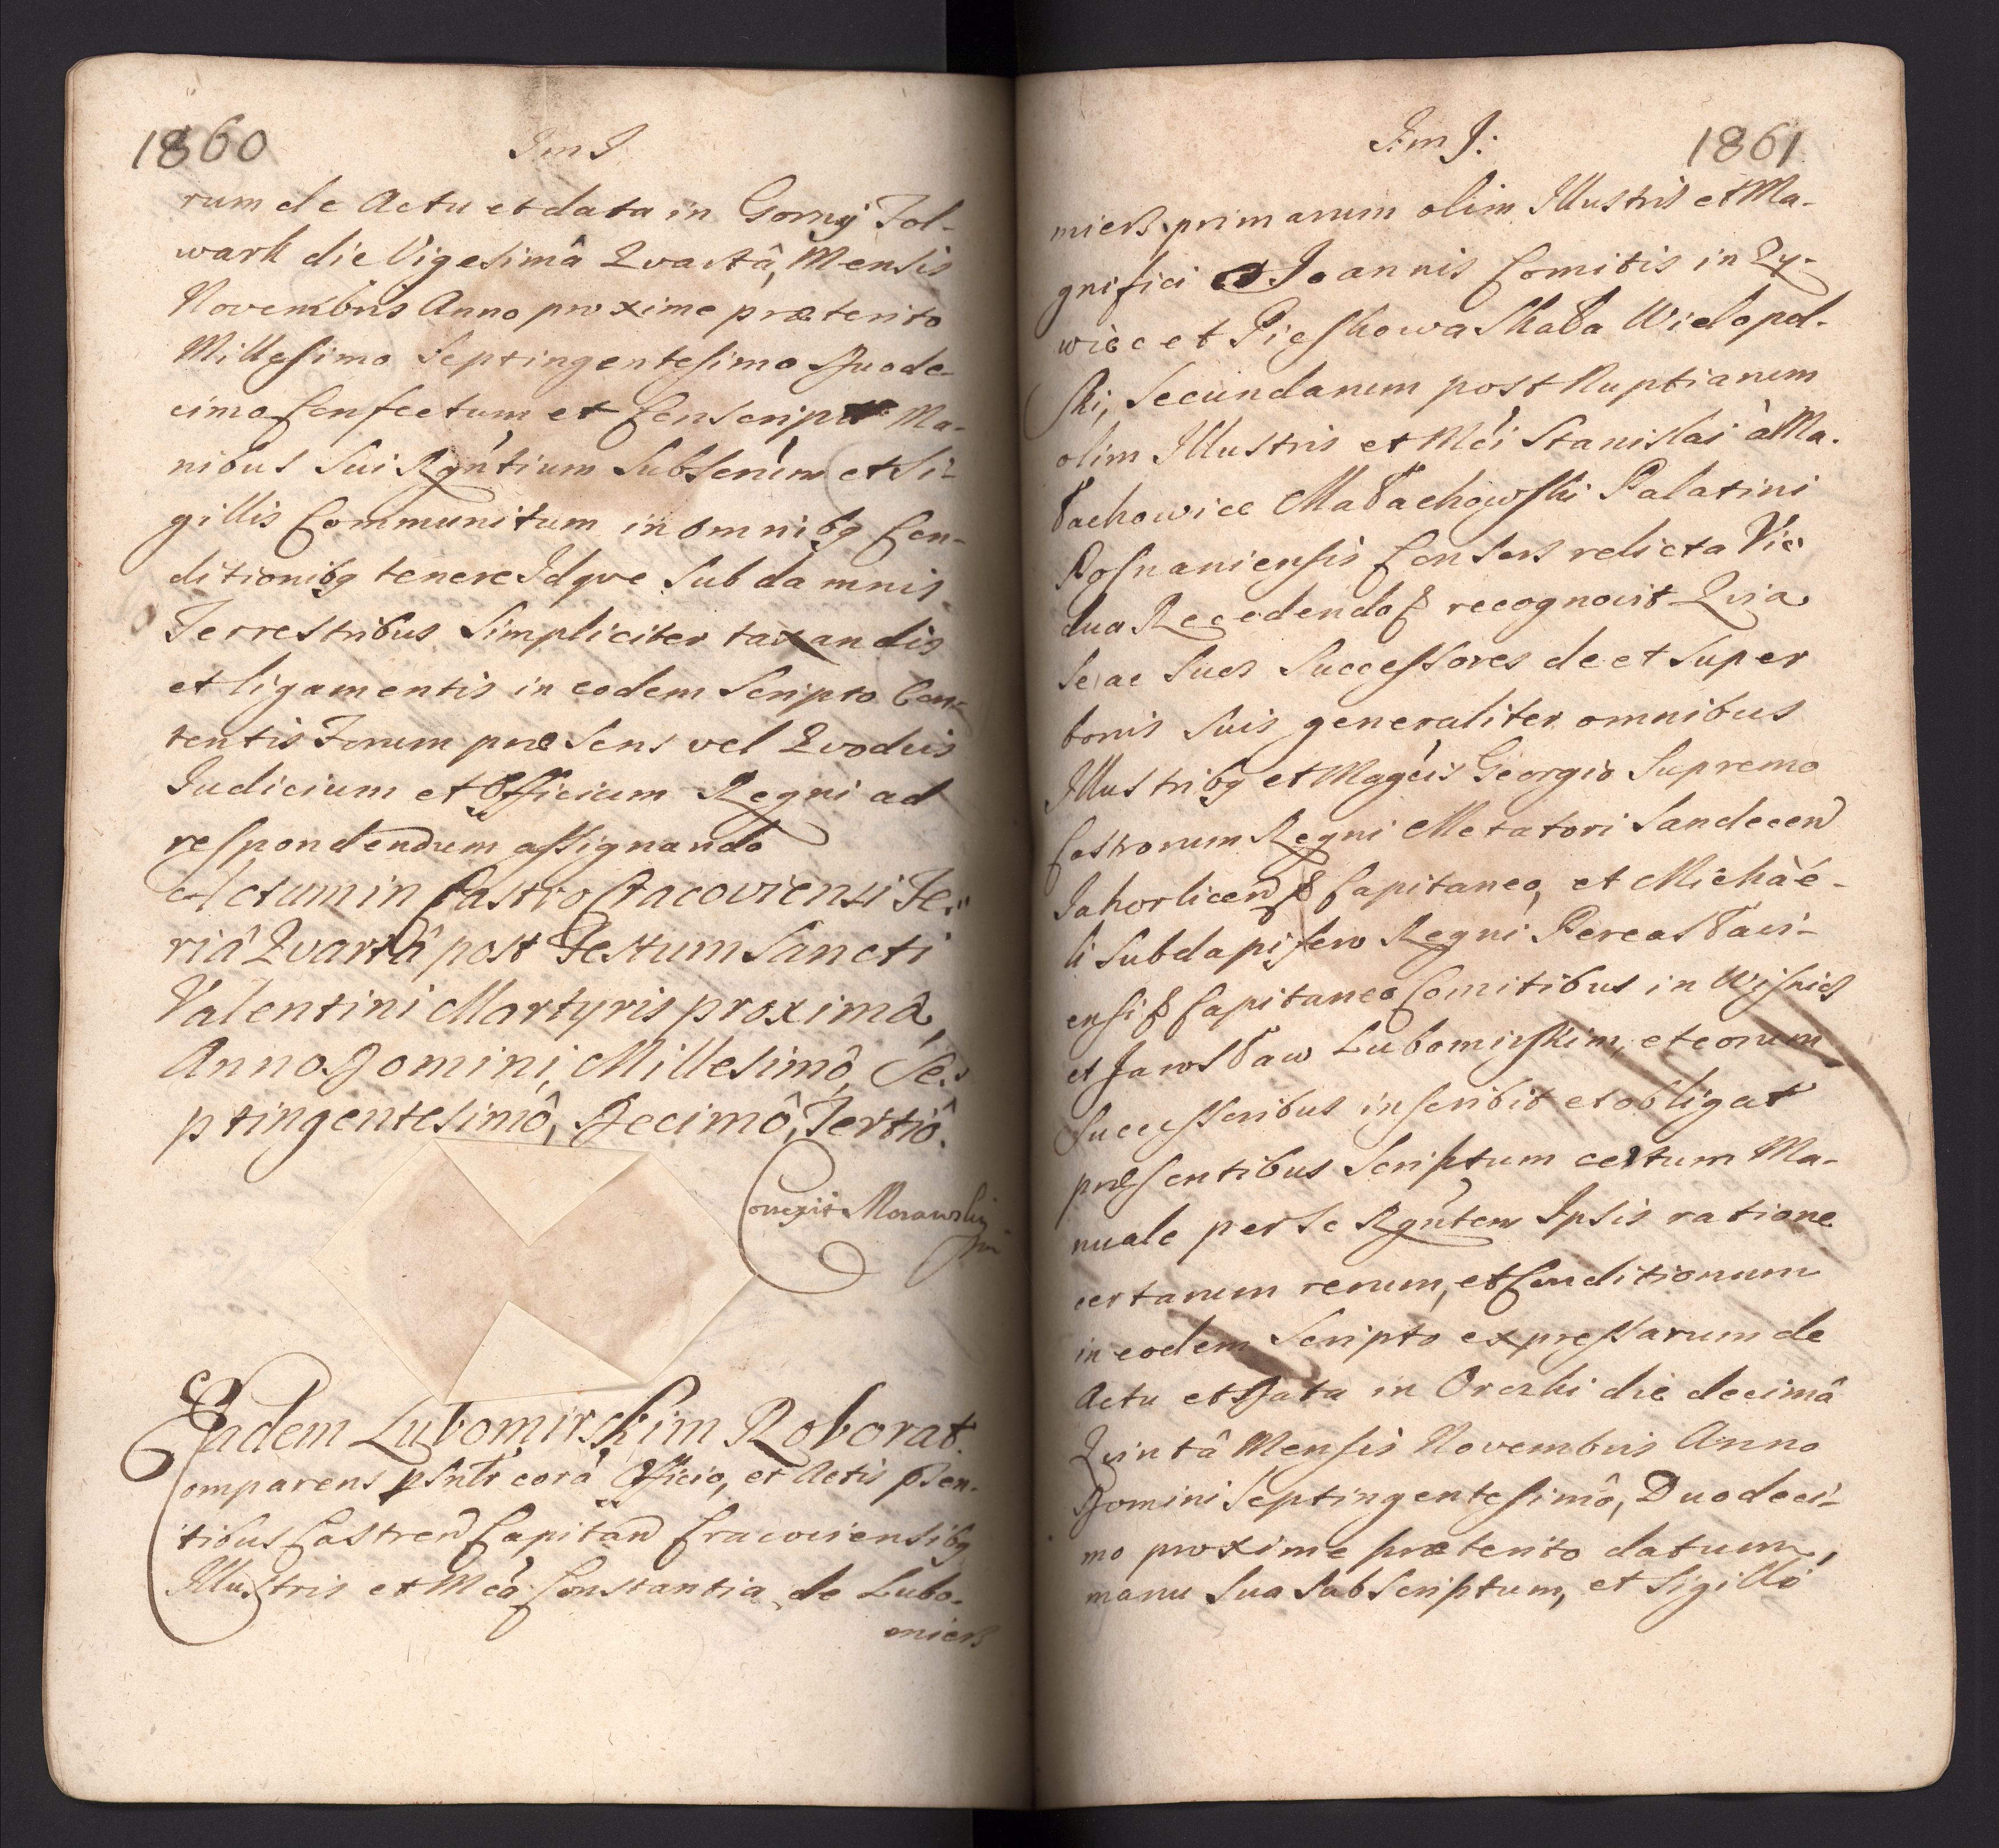 1860
J m J
rum de Actu et data in Gorny Fol-
wark die Vigesimâ Qvartâ, Mensis
Novembris Anno proxime præterito
Millesimo Septingentesimo Duode-
cimo Confectum et Conscript Ma-
nibus Sui Rgñtium Subscrim et Si-
gillis Communitum in omnibq Con-
ditionibq tenere Idqve Sub damnis
Terrestribus Simpliciter taxandis
et ligamentis in eodem Scripto Con-
tentis Forum præsens vel Qvodvis
Iudicium et Officium Regni ad
respondendum assignando
Actum in Castro Cracoviensi Fe-
riâ Qvartâ post Festum Sancti
Valentini Martyris proximâ,
Anno Domini, Millesimô, Se-
ptingentesimô, Decimô, Tertiô.
Correxit Morawsky
Eadem Lubomirskim Roborat.
Comparens psntr corâ Officio, et Actis psen-
tibus Castren Capitan Cracoviensibq
Illustris et Mca Constantia de Lubo-
miers
J: m J:
1861
miers primarum olim Illustris et Ma-
gnifici Joannis Comitis in Zy-
wiec et Pieskowa Skała Wielopol-
ski, Secundarum post Nuptiarum
olim Illustris et Mci Stanislai à Ma-
łachowice Małachowski Palatini
Posnaniensis Consors relicta Vi-
dua Recedendo recognovit Qvia
se ac Suos Successores de et Super
bonis Suis generaliter omnibus
Illustribq et Magcis Georgio Supremo
Castrorum Regni Metatori Sandecen
Jahorlicen Capitaneo, et Michàé-
li Subdapifero Regni Pereasławi-
ensi Capitaneo Comitibus in Wisnicz
et Jarosław Lubomirskim, et eorum
Successoribus inscribit et obligat
præsentibus Scriptum certum Ma-
nuale per se Rgñtem Ipsis ratione
certarum rerum, et Conditionum
in eodem Scripto expressarum de
Actu et Data in Orezki die decimâ
Qvintâ Mensis Novembris Anno
Domini Septingentesimô, Duodeci-
mo proxime præterito datum,
manu Sua Subscriptum, et Sigillo